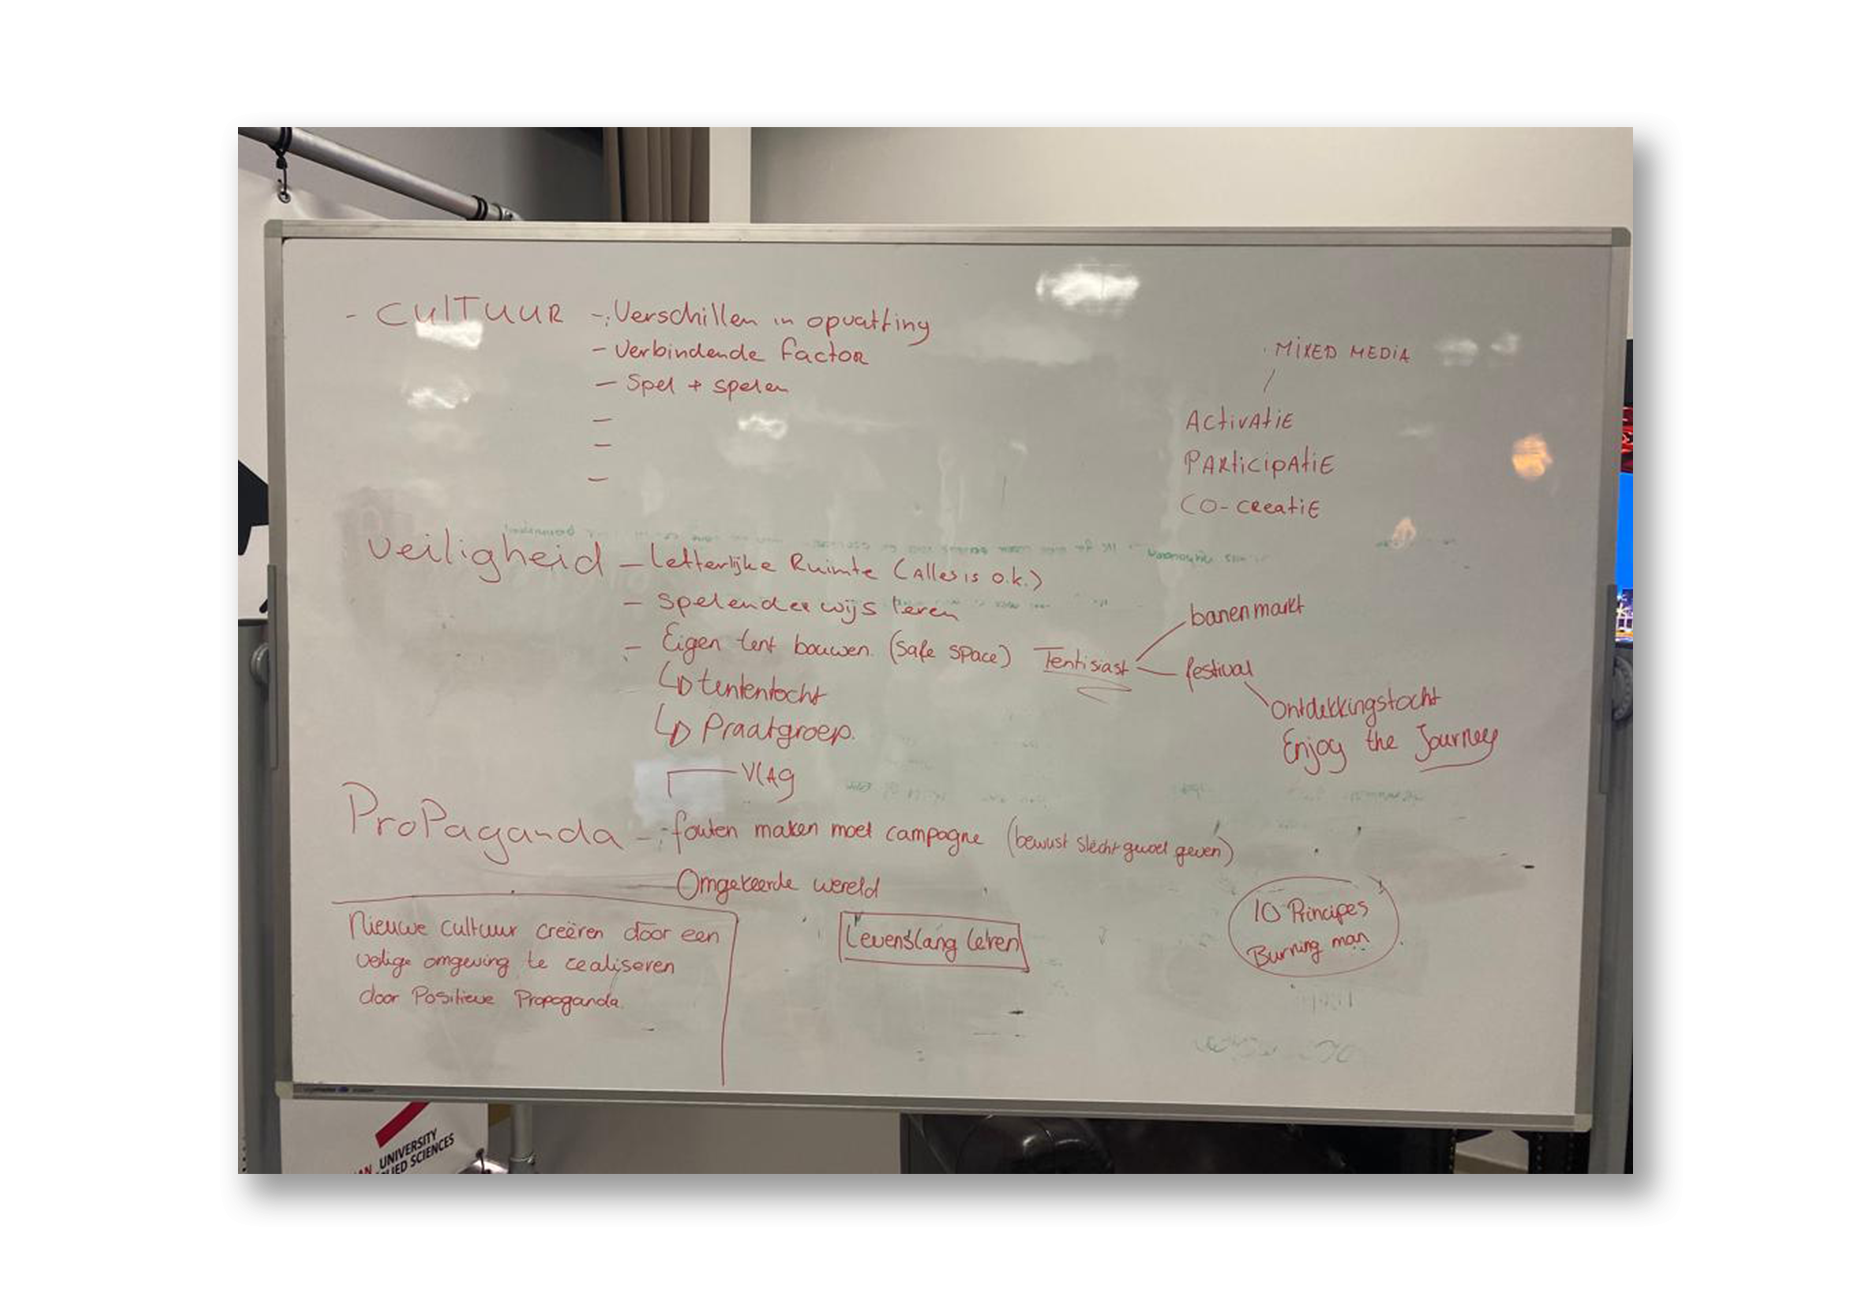 - CULTUUR - Verschillen in opvatting
- Verbindende factor
- Spel + spelen
-
-
-
MIXED MEDIA
ACTIVATIE
PARTICIPATIE
CO-CREATIE
Veiligheid - Letterlijke Ruimte (Alles is o.k.)
- Spelenderwijs leren
- Eigen tent bouwen. (safe space) Tentisiast
banenmarkt
festival
Ontdekkingstocht
Enjoy the Journey
↳ tententocht
↳ Praatgroep.
VLAG
ProPaganda - fouten maken moet campagne (bewust slecht gevoel geven)
Omgekeerde wereld
Nieuwe cultuur creëren door een
veilige omgeving te realiseren
door Positieve Propaganda.
Levenslang leren
10 Principes
Burning man
UNIVERSITY
SCIENCES